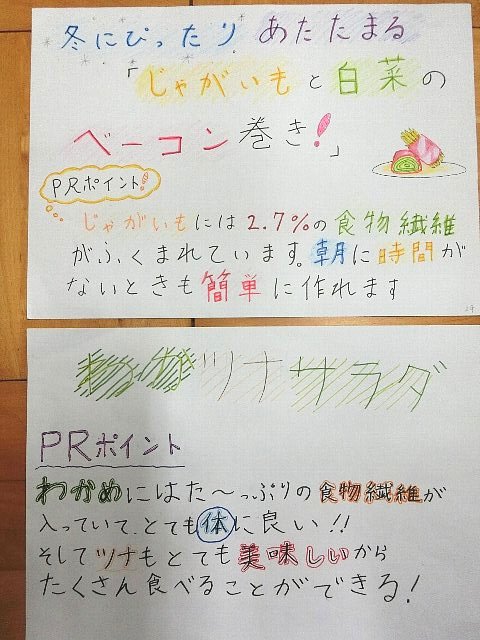 冬にぴったり あたたまる
「じゃがいもと白菜の
ベーコン巻き!」
PRポイント!
じゃがいもには2.7%の食物繊維
がふくまれています。朝に時間が
ないときも簡単に作れます
わかめツナサラダ
PRポイント
わかめにはた～っぷりの食物繊維が
入っていて、とても体に良い!!
そしてツナもとても美味しいから
たくさん食べることができる!